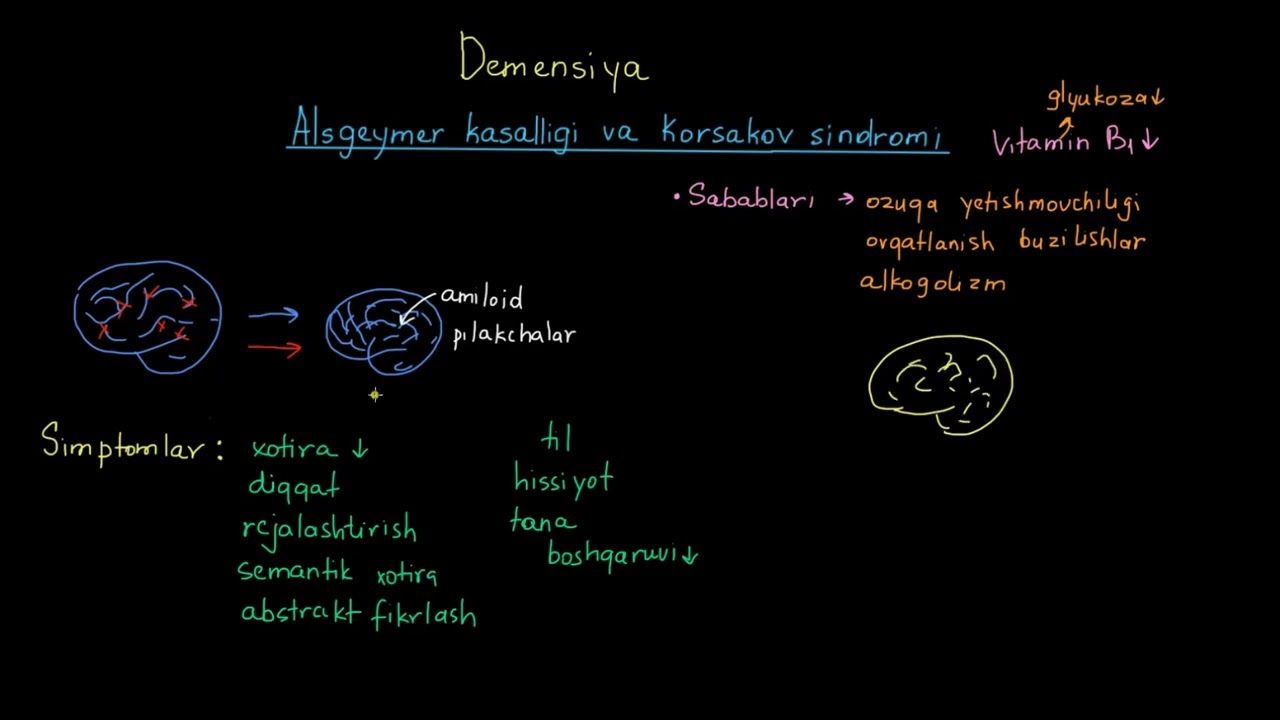 Demensiya
Alsgeymer kasalligi va Korsakov sindromi
glyukoza↓
Vitamin B₁↓
• Sabablari → ozuqa yetishmovchiligi
ovqatlanish buzilishlar
alkogolizm
amiloid
pilakchalar
Simptomlar:
xotira ↓
diqqat
rejalashtirish
semantik xotira
abstrakt fikrlash
til
hissiyot
tana
boshqaruvi↓